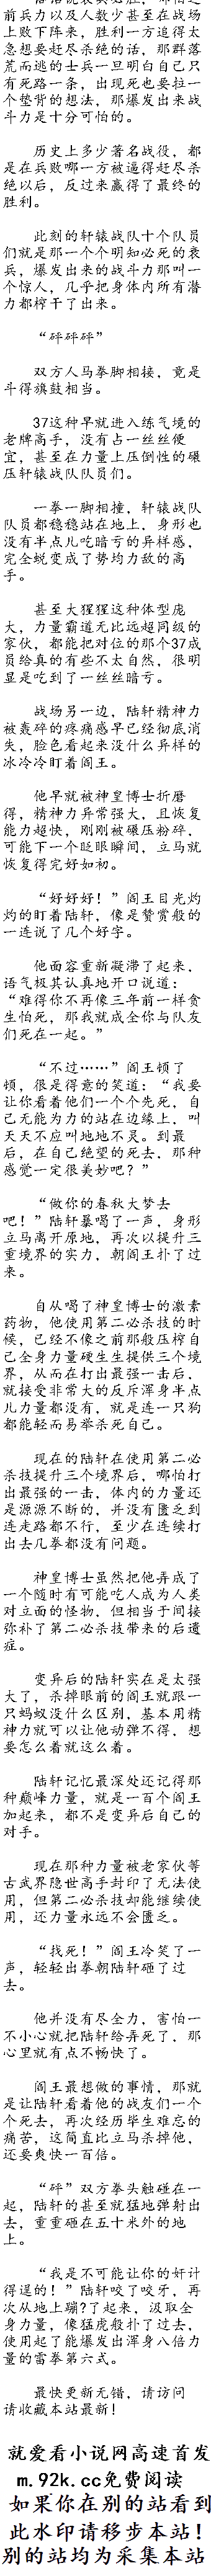 前兵力以及人数少甚至在战场
上败下阵来，胜利一方追得太
急想要赶尽杀绝的话，那群落
荒而逃的士兵一旦明白自己只
有死路一条，出现死也要拉一
个垫背的想法，那爆发出来战
斗力是十分可怕的。
历史上多少著名战役，都
是在兵败哪一方被逼得赶尽杀
绝以后，反过来赢得了最终的
胜利。
此刻的轩辕战队十个队员
们就是那一个个明知必死的哀
兵，爆发出来的战斗力那叫一
个惊人，几乎把身体内所有潜
力都榨干了出来。
“砰砰砰”
双方人马拳脚相接，竟是
斗得旗鼓相当。
37这种早就进入练气境的
老牌高手，没有占一丝丝便
宜，甚至在力量上压倒性的碾
压轩辕战队队员们。
一拳一脚相撞，轩辕战队
队员都稳稳站在地上，身形也
没有半点儿吃暗亏的异样感，
完全蜕变成了势均力敌的高
手。
甚至大猩猩这种体型庞
大，力量霸道无比远超同级的
家伙，都能把对位的那个37成
员给真的有些不太自然，很明
显是吃到了一丝丝暗亏。
战场另一边，陆轩精神力
被轰碎的疼痛感早已经彻底消
失，脸色看起来没什么异样的
冰冷冷盯着阎王。
他早就被神皇博士折磨
得，精神力异常强大，且恢复
能力超快，刚刚被碾压粉碎，
可能下一个眨眼瞬间，立马就
恢复得完好如初。
“好好好！”阎王目光灼
灼的盯着陆轩，像是赞赏般的
一连说了几个好字。
他面容重新凝滞了起来，
语气极其认真地开口说道：
“难得你不再像三年前一样贪
生怕死，那我就成全你与队友
们死在一起。”
“不过……”阎王顿了
顿，很是得意的笑道：“我要
让你看着他们一个个先死，自
己无能为力的站在边缘上，叫
天天不应叫地地不灵。到最
后，在自己绝望的死去，那种
感觉一定很美妙吧？”
“做你的春秋大梦去
吧！”陆轩暴喝了一声，身形
立马离开原地，再次以提升三
重境界的实力，朝阎王扑了过
来。
自从喝了神皇博士的激素
药物，他使用第二必杀技的时
候，已经不像之前那般压榨自
己全身力量硬生生提供三个境
界，从而在打出最强一击后，
就接受非常大的反斥浑身半点
儿力量都没有，就是连一只狗
都能轻而易举杀死自己。
现在的陆轩在使用第二必
杀技提升三个境界后，哪怕打
出最强的一击，体内的力量还
是源源不断的，并没有匮乏到
连走路都不行，至少在连续打
出去几拳都没有问题。
神皇博士虽然把他弄成了
一个随时有可能吃人成为人类
对立面的怪物，但相当于间接
弥补了第二必杀技带来的后遗
症。
变异后的陆轩实在是太强
大了，杀掉眼前的阎王就跟一
只蚂蚁没什么区别，基本用精
神力就可以让他动弹不得，想
要怎么着就这么着。
陆轩记忆最深处还记得那
种巅峰力量，就是一百个阎王
加起来，都不是变异后自己的
对手。
现在那种力量被老家伙等
古武界隐世高手封印了无法使
用，但第二必杀技却能继续使
用，还力量永远不会匮乏。
“找死！”阎王冷笑了一
声，轻轻出拳朝陆轩砸了过
去。
他并没有尽全力，害怕一
不小心就把陆轩给弄死了，那
心里就有点不畅快了。
阎王最想做的事情，那就
是让陆轩看着他的战友们一个
个死去，再次经历毕生难忘的
痛苦，这简直比立马杀掉他，
还要爽快一百倍。
“砰”双方拳头触碰在一
起，陆轩的甚至就猛地弹射出
去，重重砸在五十米外的地
上。
“我是不可能让你的奸计
得逞的！”陆轩咬了咬牙，再
次从地上蹦?了起来，汲取全
身力量，像猛虎般扑了过去，
使用起了能爆发出浑身八倍力
量的雷拳第六式。
最快更新无错，请访问
请收藏本站最新！
就爱看小说网高速首发
m.92k.cc免费阅读
如果你在别的站看到
此水印请移步本站！
别的站均为采集本站